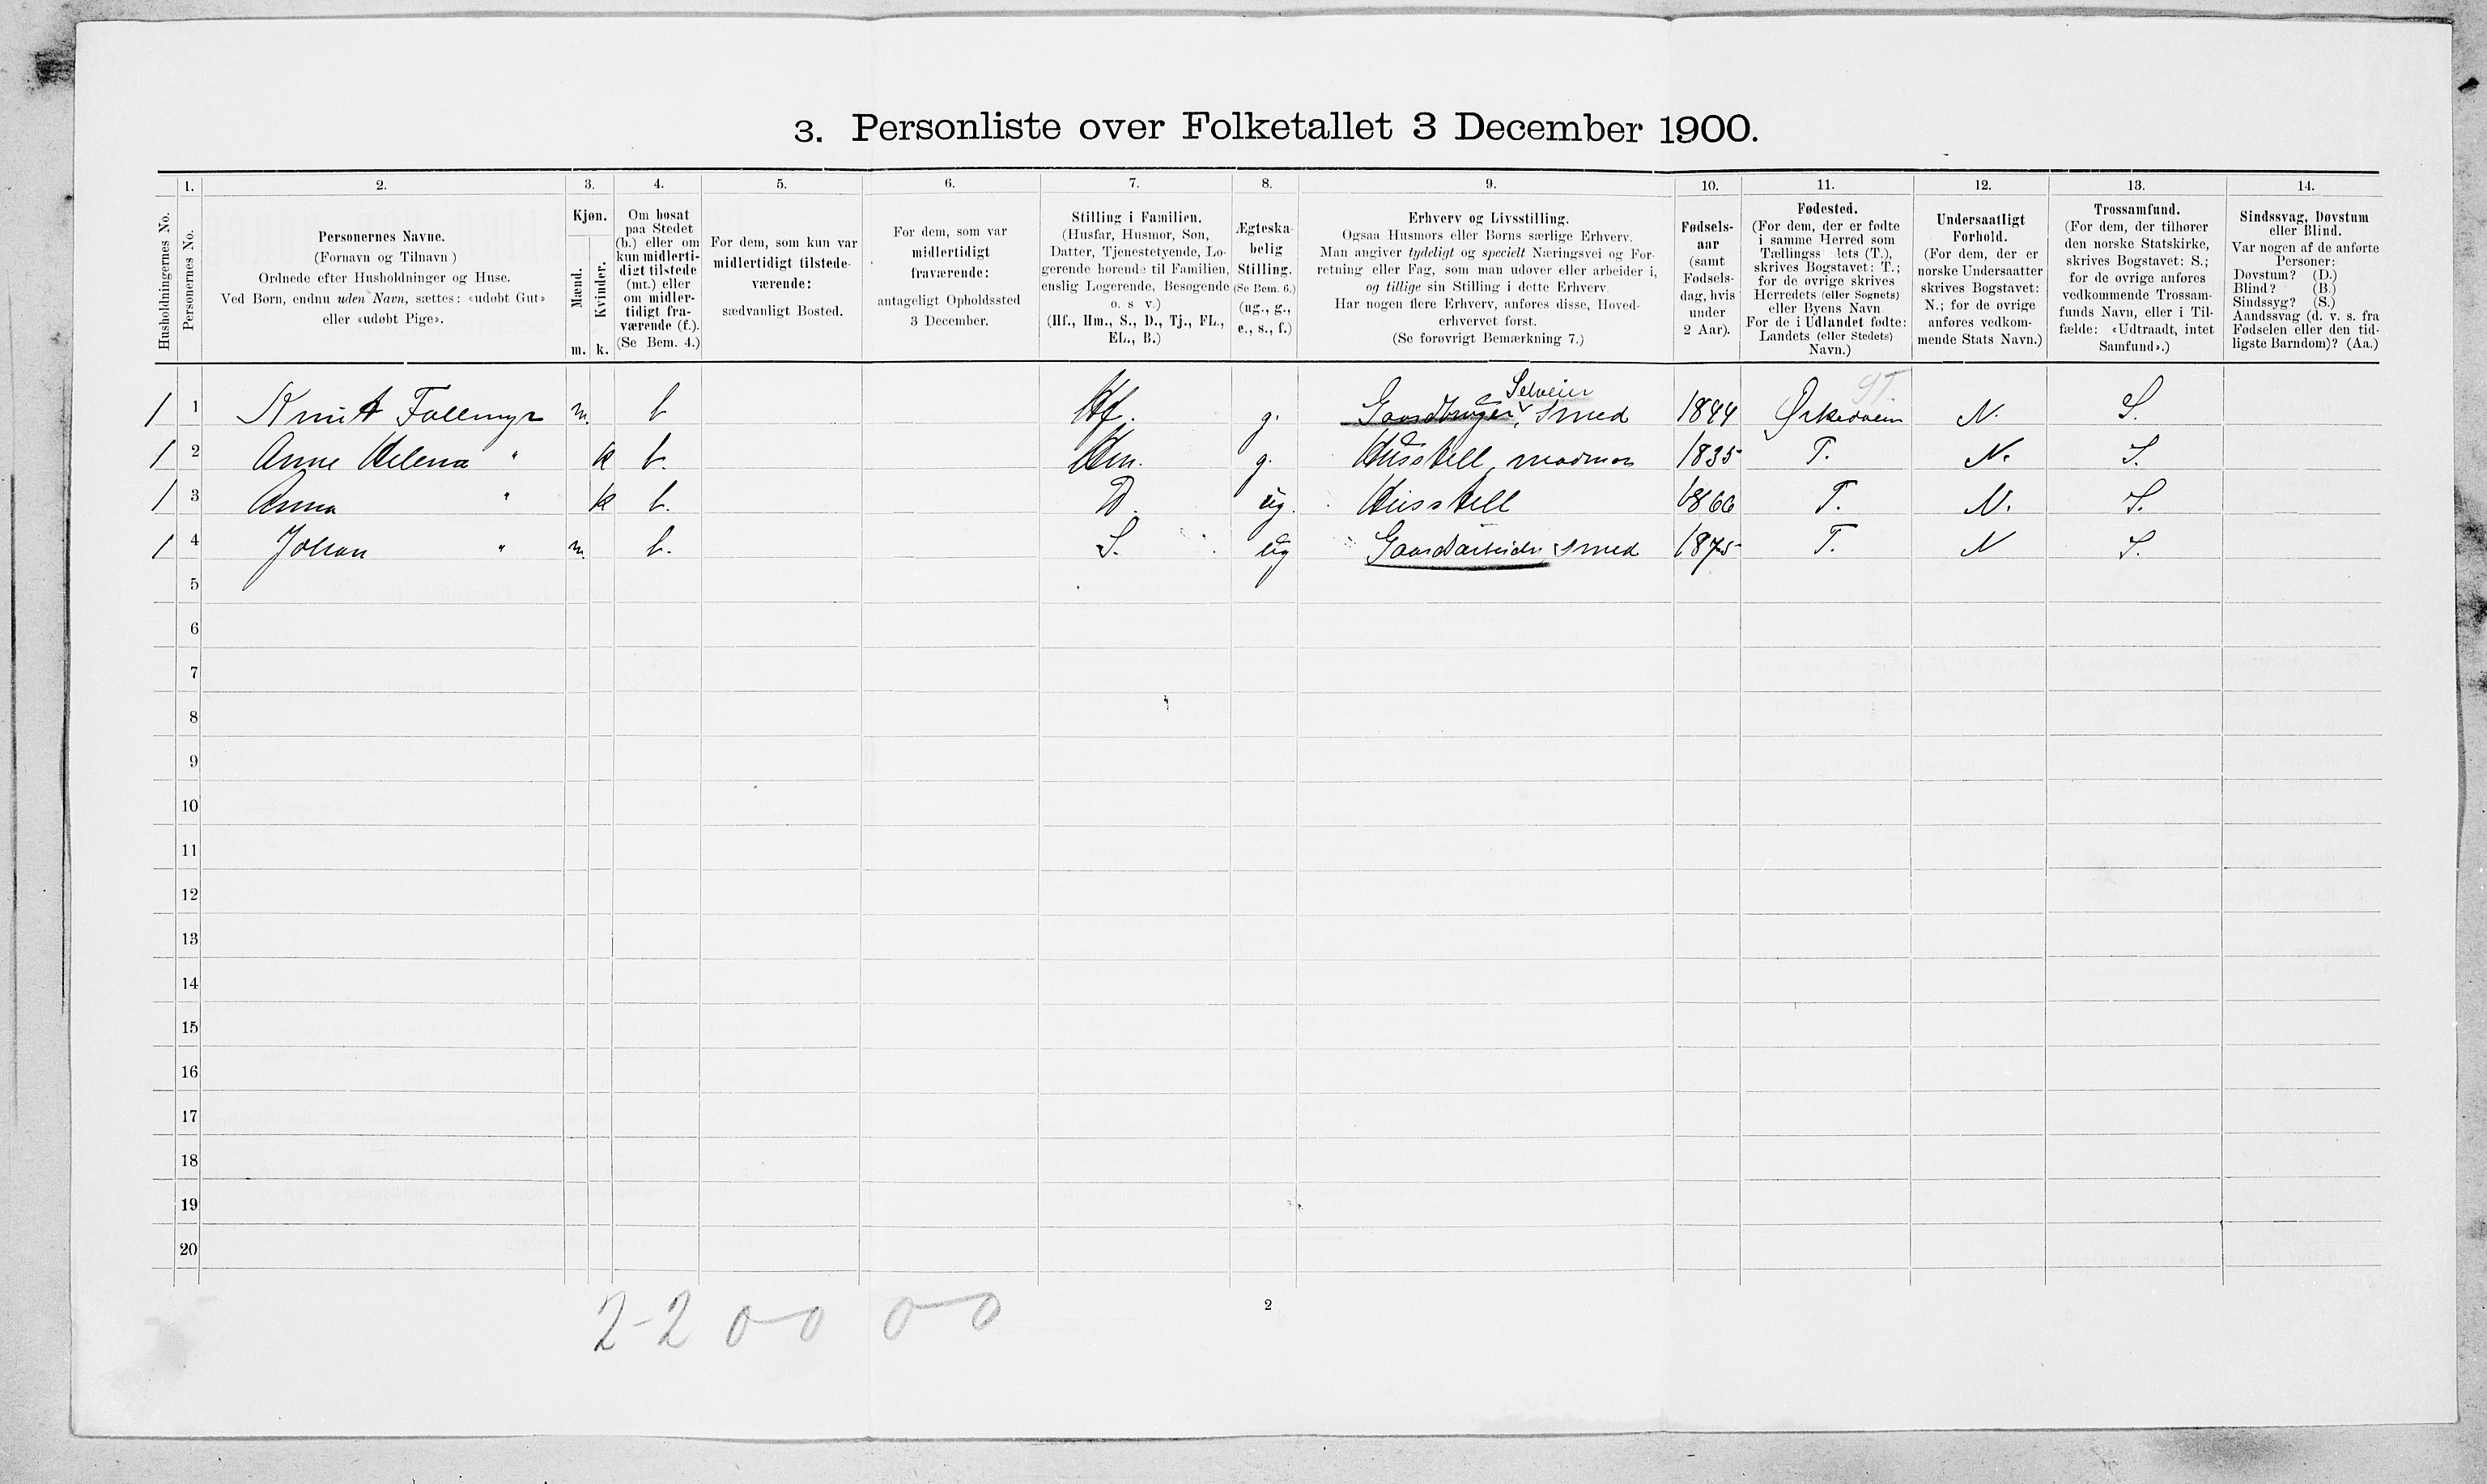 3. Personliste over Folketallet 3 December 1900.
Husholdningernes No.
1.
Personernes No.
2.
Personernes Navne.
(Fornavn og Tilnavn )
Ordnede efter Husholdninger og Huse.
Ved Børn, endnu uden Navn, sættes: «udøbt Gut»
eller «udøbt Pige».
3.
Kjøn.
Mænd.
Kvinder.
m. k.
4.
Om bosat
paa Stedet
(b.) eller om
kun midlerti-
digt tilstede
(mt.) eller
om midler-
tidigt fra-
værende (f.).
(Se Bem. 4.)
5.
For dem, som kun var
midlertidigt tilstede-
værende:
sædvanligt Bosted.
6.
For dem, som var
midlertidigt
fraværende:
antageligt Opholdssted
3 December.
7.
Stilling i Familien.
(Husfar, Husmor, Søn,
Datter, Tjenestetyende, Lo-
gerende hørende til Familien,
enslig Logerende, Besøgende
o. s v.)
(Hf., Hm., S., D., Tj., FL.,
EL., B.)
8.
Ægteska-
belig
Stilling.
(Se Bem. 6.)
(ug., g.,
e., s., f.)
9.
Erhverv og Livsstilling.
Ogsaa Husmors eller Børns særlige Erhverv.
Man angiver tydeligt og specielt Næringsvei og For-
retning eller Fag, som man udøver eller arbeider i,
og tillige sin Stilling i dette Erhverv.
Har nogen flere Erhverv, anføres disse, Hoved-
erhvervet først.
(Se forøvrigt Bemærkning 7.)
10.
Fødsels-
aar
(samt
Fødsels-
dag, hvis
under
2 Aar).
11.
Fødested.
(For dem, der er fødte
i samme Herred som
Tællingss lets (T.),
skrives Bogstavet: T.;
for de øvrige skrives
Herredets (eller Sognets)
eller Byens Navn
For de i Udlandet fødte:
Landets (eller Stedets)
Navn.)
12.
Undersaatligt
Forhold.
(For dem, der er
norske Undersaatter
skrives Bogstavet:
N.; for de øvrige
anføres vedkom-
mende Stats Navn.)
13.
Trossamfund.
(For dem, der tilhører
den norske Statskirke,
skrives Bogstavet: S.;
for de øvrige anføres
vedkommende Trossam-
funds Navn, eller i Til-
fælde: «Udtraadt, intet
Samfund».)
14.
Sindssvag, Døvstum
eller Blind.
Var nogen af de anførte
Personer:
Døvstum? (D.)
Blind? (B.)
Sindssyg? (S.)
Aandssvag (d. v. s. fra
Fødselen eller den tid-
ligste Barndom)? (Aa.)
Selveier ST
1 1 Knut Follmyr m. b Hf. g. Gaardbruger, Smed 1844 Ørkedalen N. S.
1 2 Anne Helena " k b. Hm. g. Husstell, madmor 1835 T. N. S.
1 3 Anna " k b. D. ug. Husstell 1866 T. N. S.
1 4 Johan " m. b. S. ug Gaardarbeider, Smed 1875 T. N S.
5
6
7
8
9
10
11
12
13
14
15
16
17
18
19
20
2-2 0-0 0-0
2